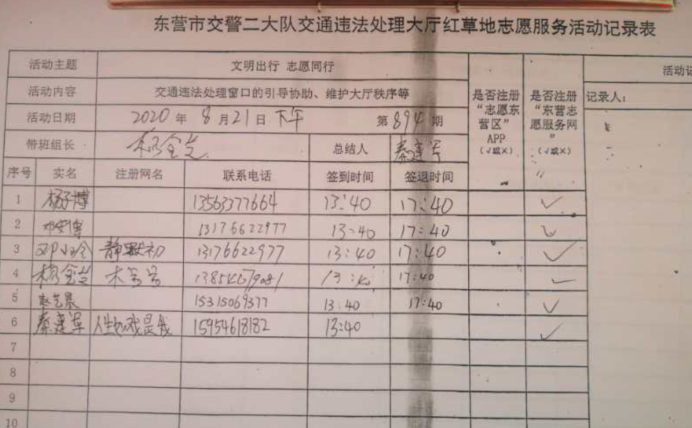 东营市交警二大队交通违法处理大厅红草地志愿服务活动记录表
活动主题 文明出行 志愿同行 活动记
活动内容 交通违法处理窗口的引导协助、维护大厅秩序等 是否注册“志愿东营区”APP(√或×) 是否注册“东营志愿服务网”(√或×) 记录人:
活动日期 2020年8月21日下午 第894期
带班组长 总结人 秦建军
序号 实名 注册网名 联系电话 签到时间 签退时间
1 杨子博 13563377664 13:40 17:40 ✓
2 13176622977 13:40 17:40 ✓
3 邓小玲 静默如初 13176622977 13:40 17:40 ✓
4 13:40 17:40 ✓
5 15315069377 13:40 17:40 ✓
6 秦建军 人生如戏是我 15954618182 13:40 ✓
7
8
9
10